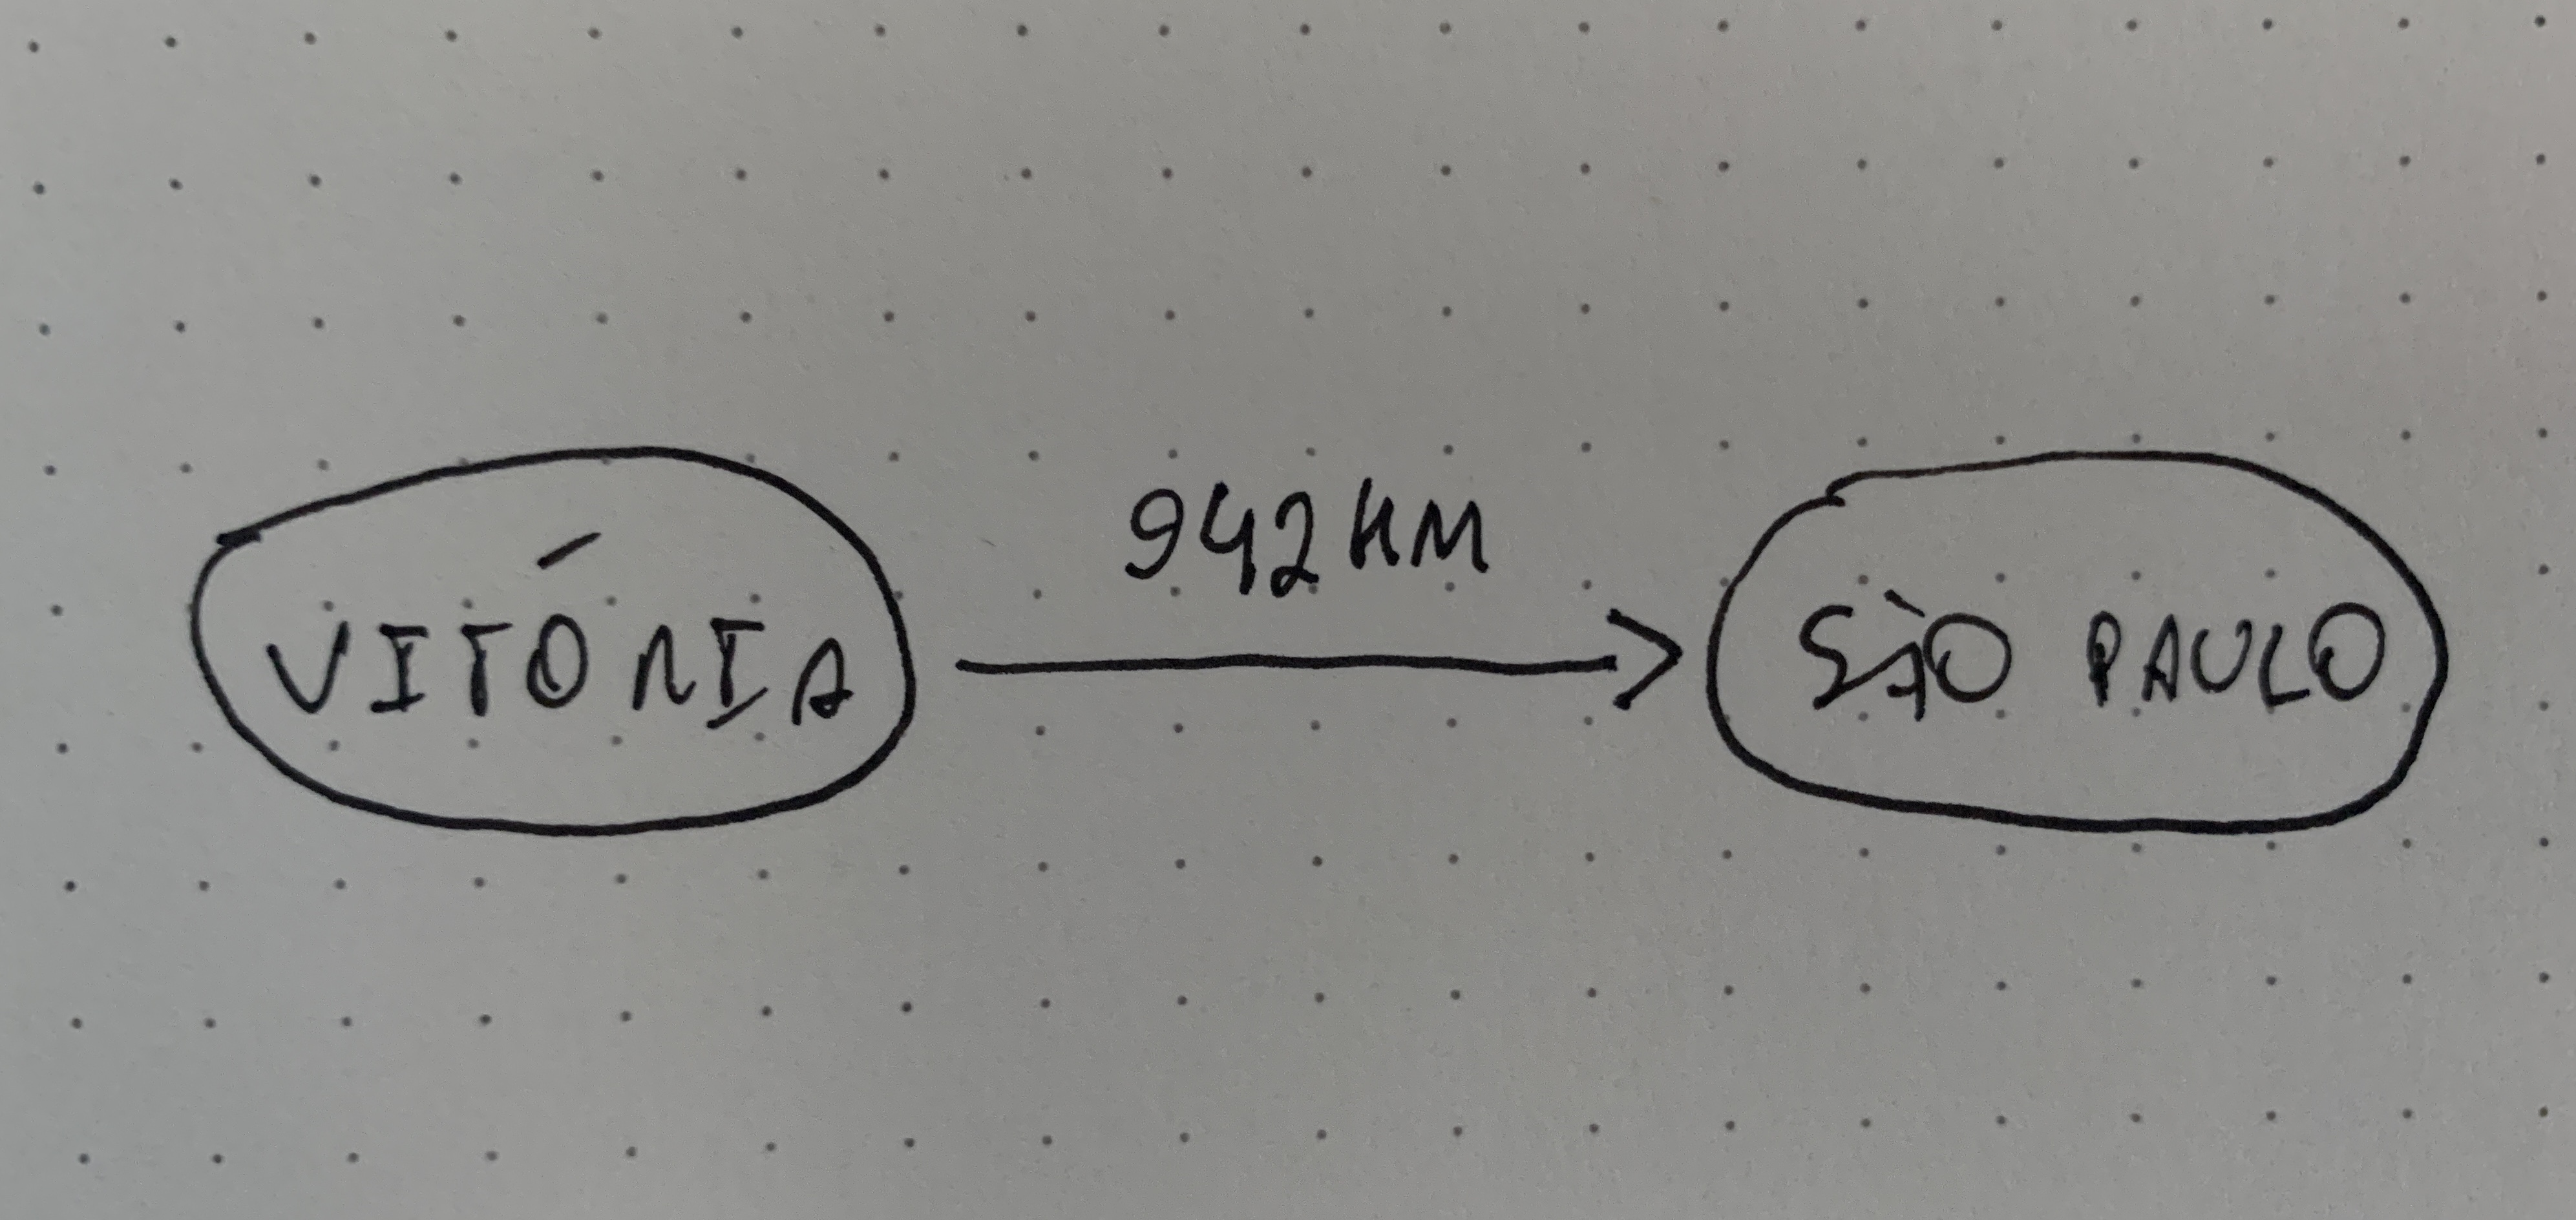 VITÓRIA
942 KM
SÃO PAULO